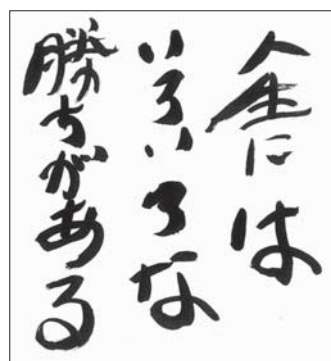 人生には
いろいろな
勝ちがある